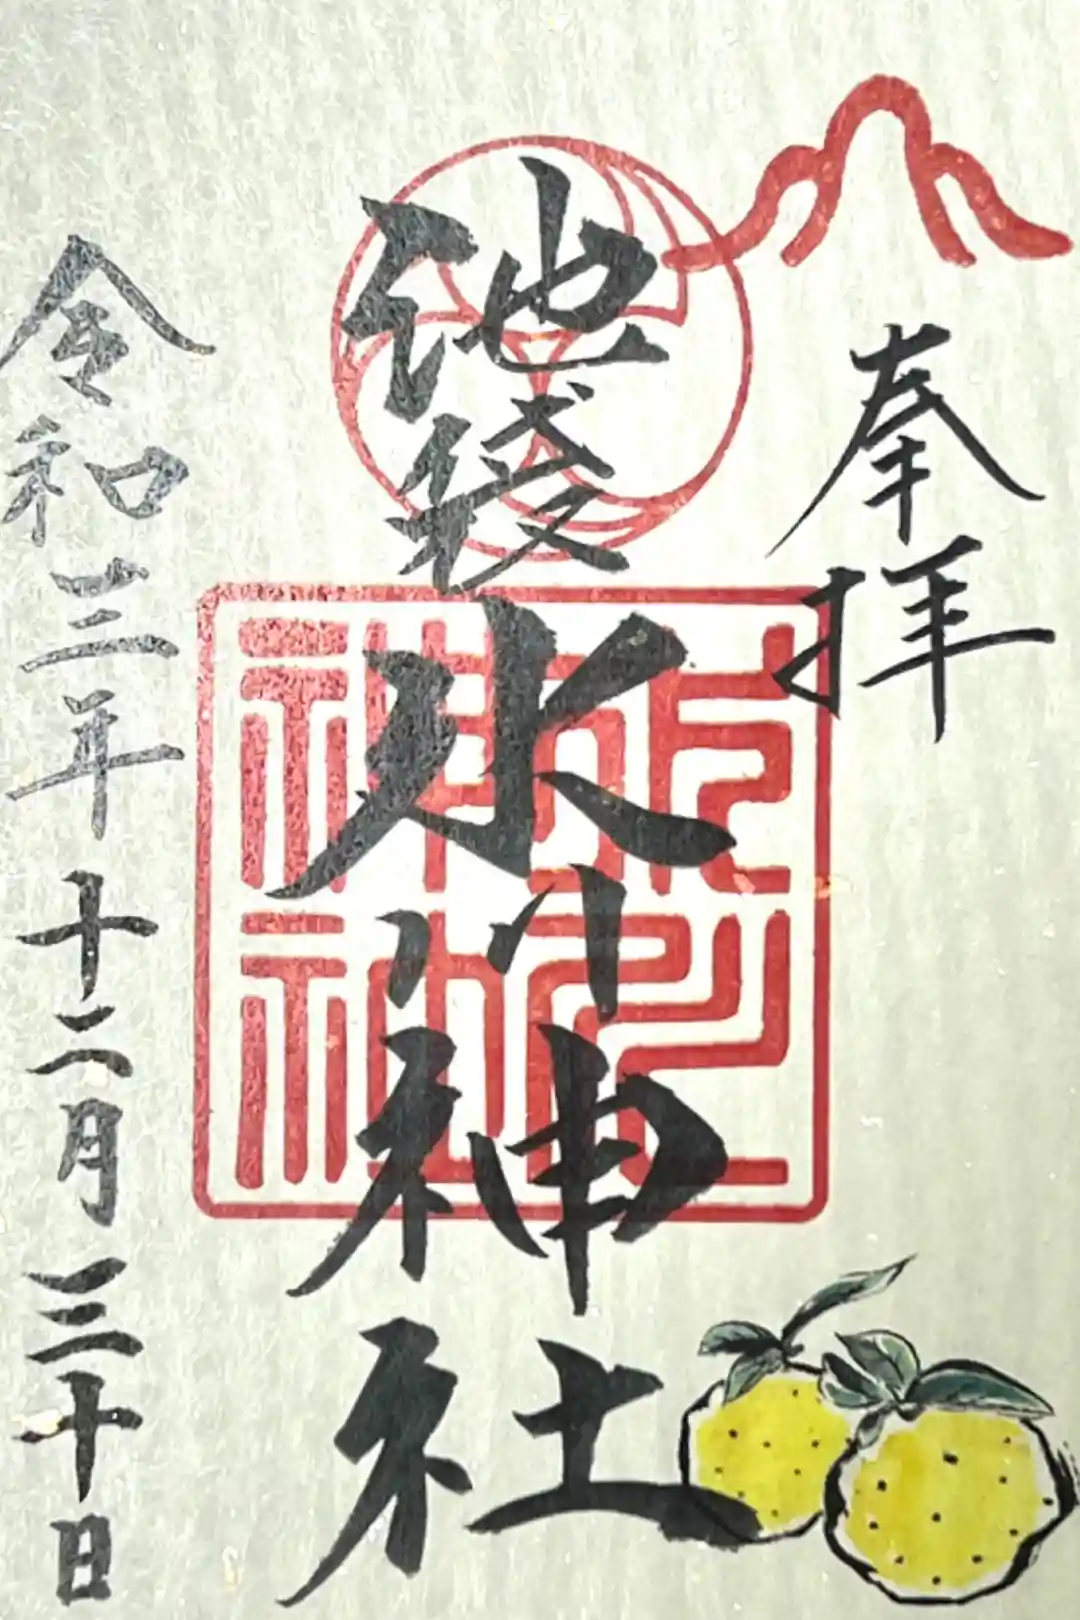 奉拝
池袋氷川神社
氷川神社
令和三年十二月三十日